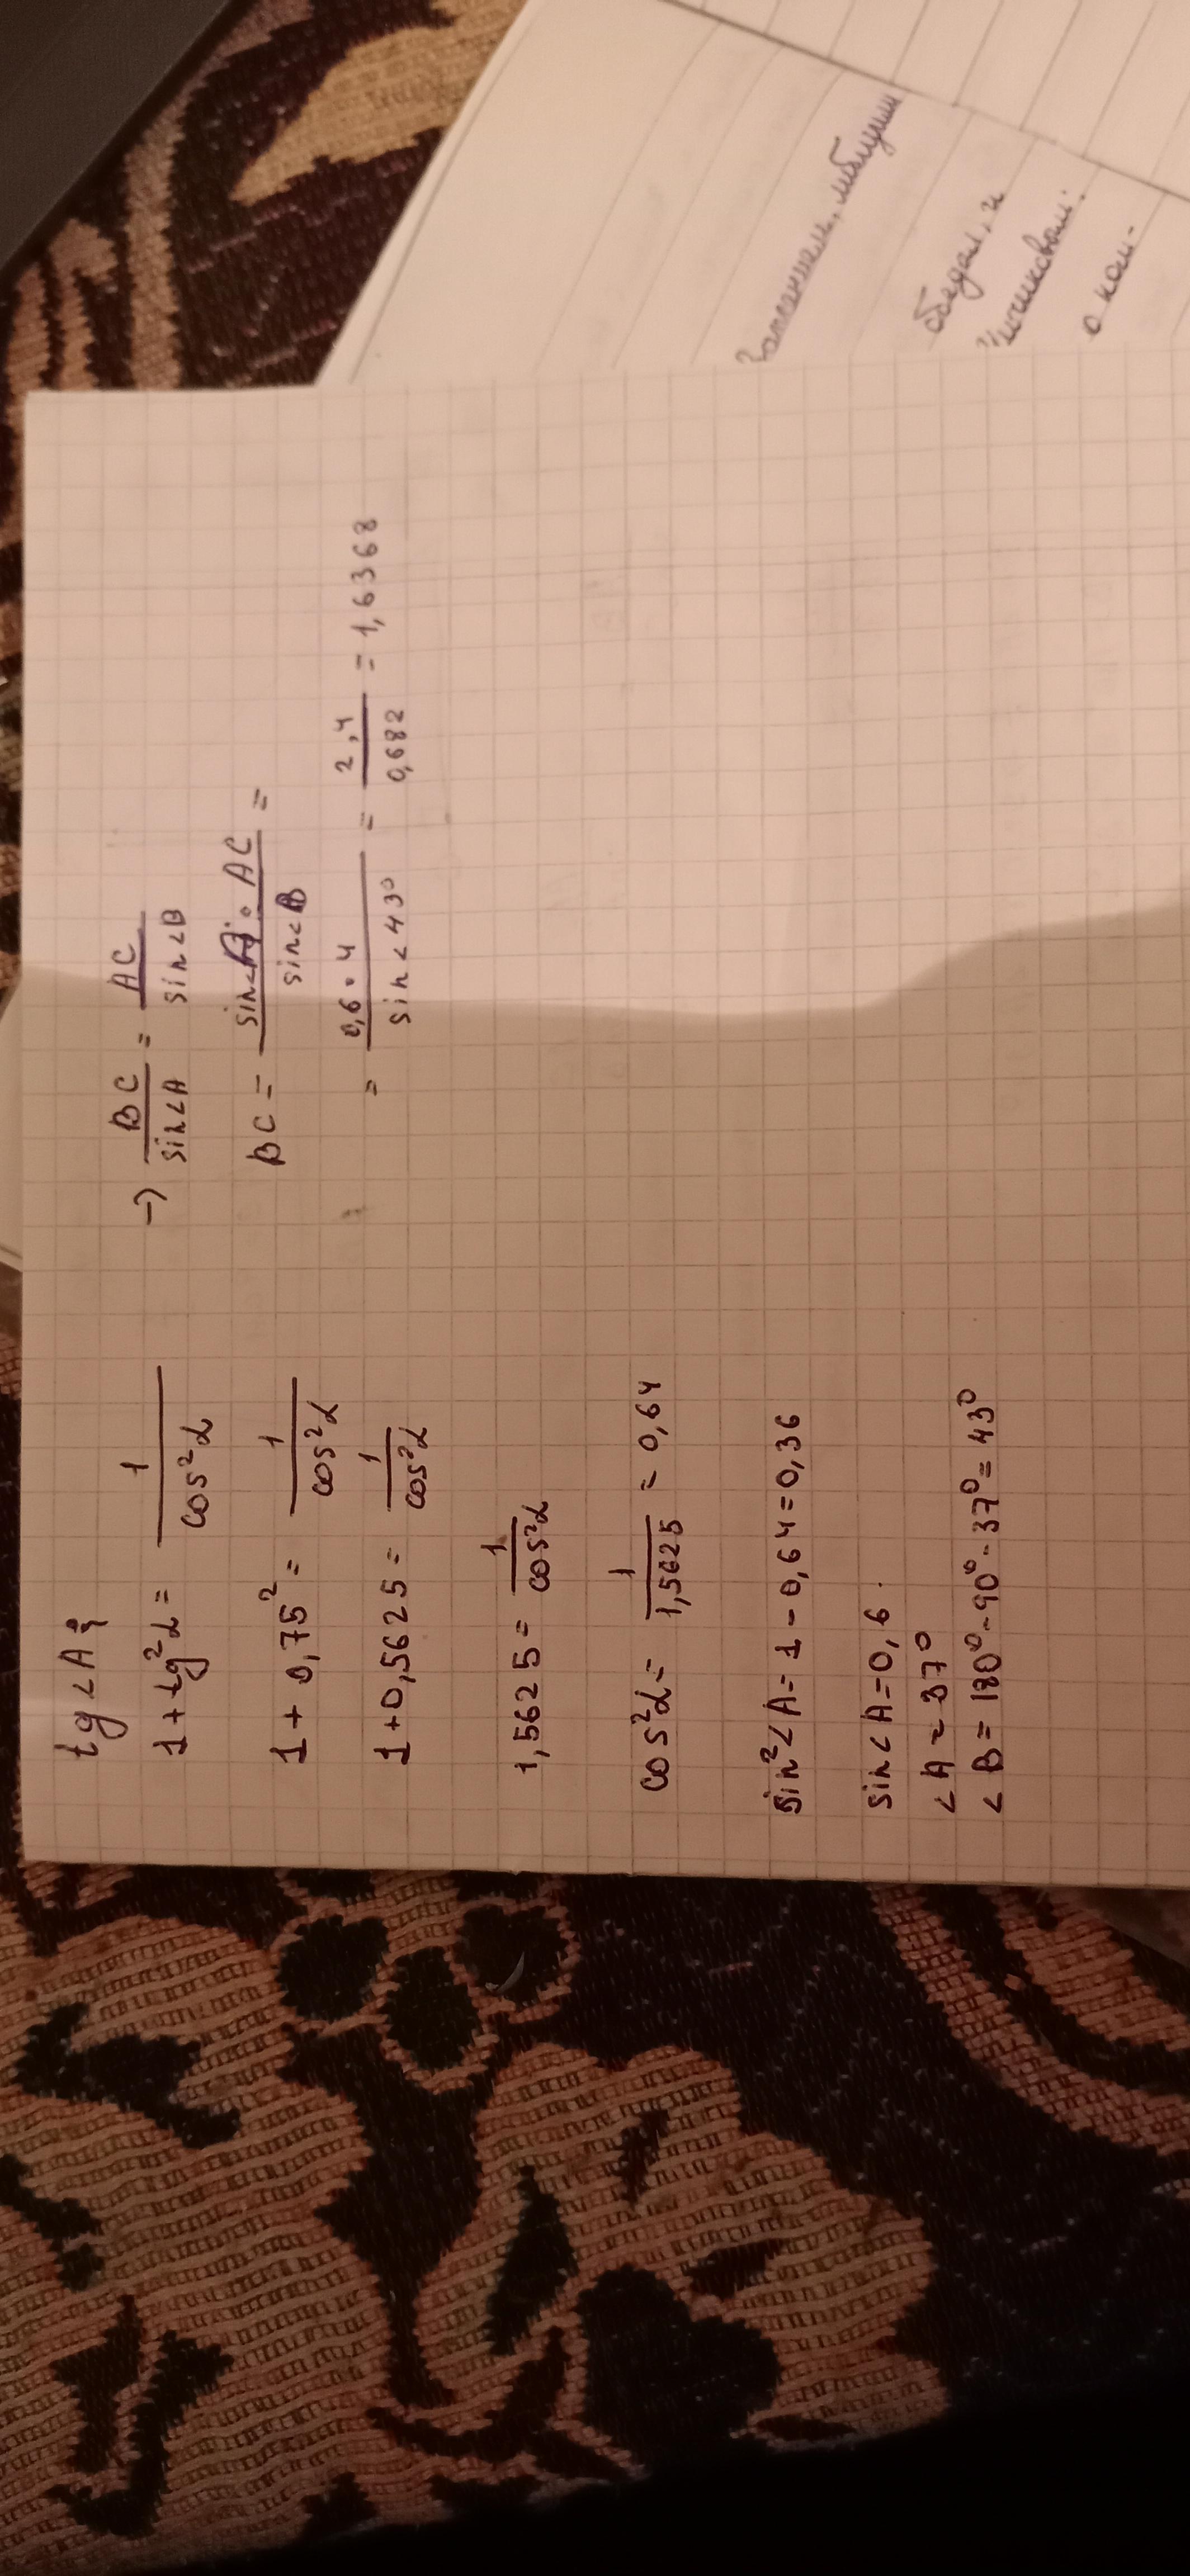 tg ∠A;
1 + tg²α = 1/cos²α
1 + 0,75² = 1/cos²α
1 + 0,5625 = 1/cos²α
1,5625 = 1/cos²α
cos²α = 1/1,5625 = 0,64
sin²∠A = 1 - 0,64 = 0,36
sin∠A = 0,6.
∠A ≈ 37°
∠B = 180° - 90° - 37° = 43°
→ BC/sin∠A = AC/sin∠B
BC = sin∠A · AC/sin∠B =
= 0,6 · 4/sin∠43° = 2,4/0,682 = 1,6368
обедал, и
о кам-